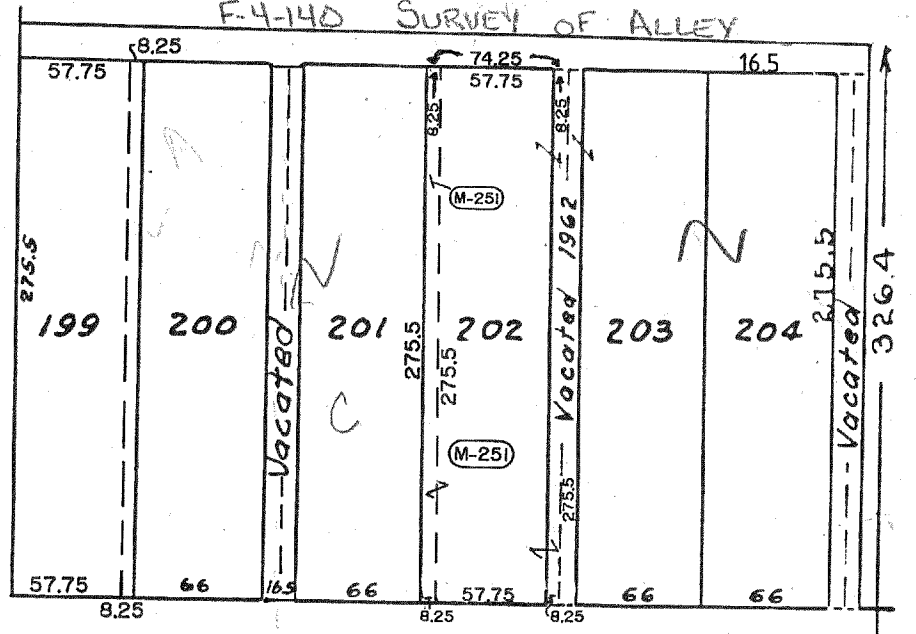 F-4-140 SURVEY OF ALLEY
8.25
57.75
74.25
57.75
16.5
8.25
8.25
M-251
275.5
199
200
Vacated
N
201
C
275.5
202
275.5
M-251
Vacated 1962
275.5
203
N
204
275.5
Vacated
326.4
57.75
8.25
66
16.5
66
8.25
57.75
8.25
66
66